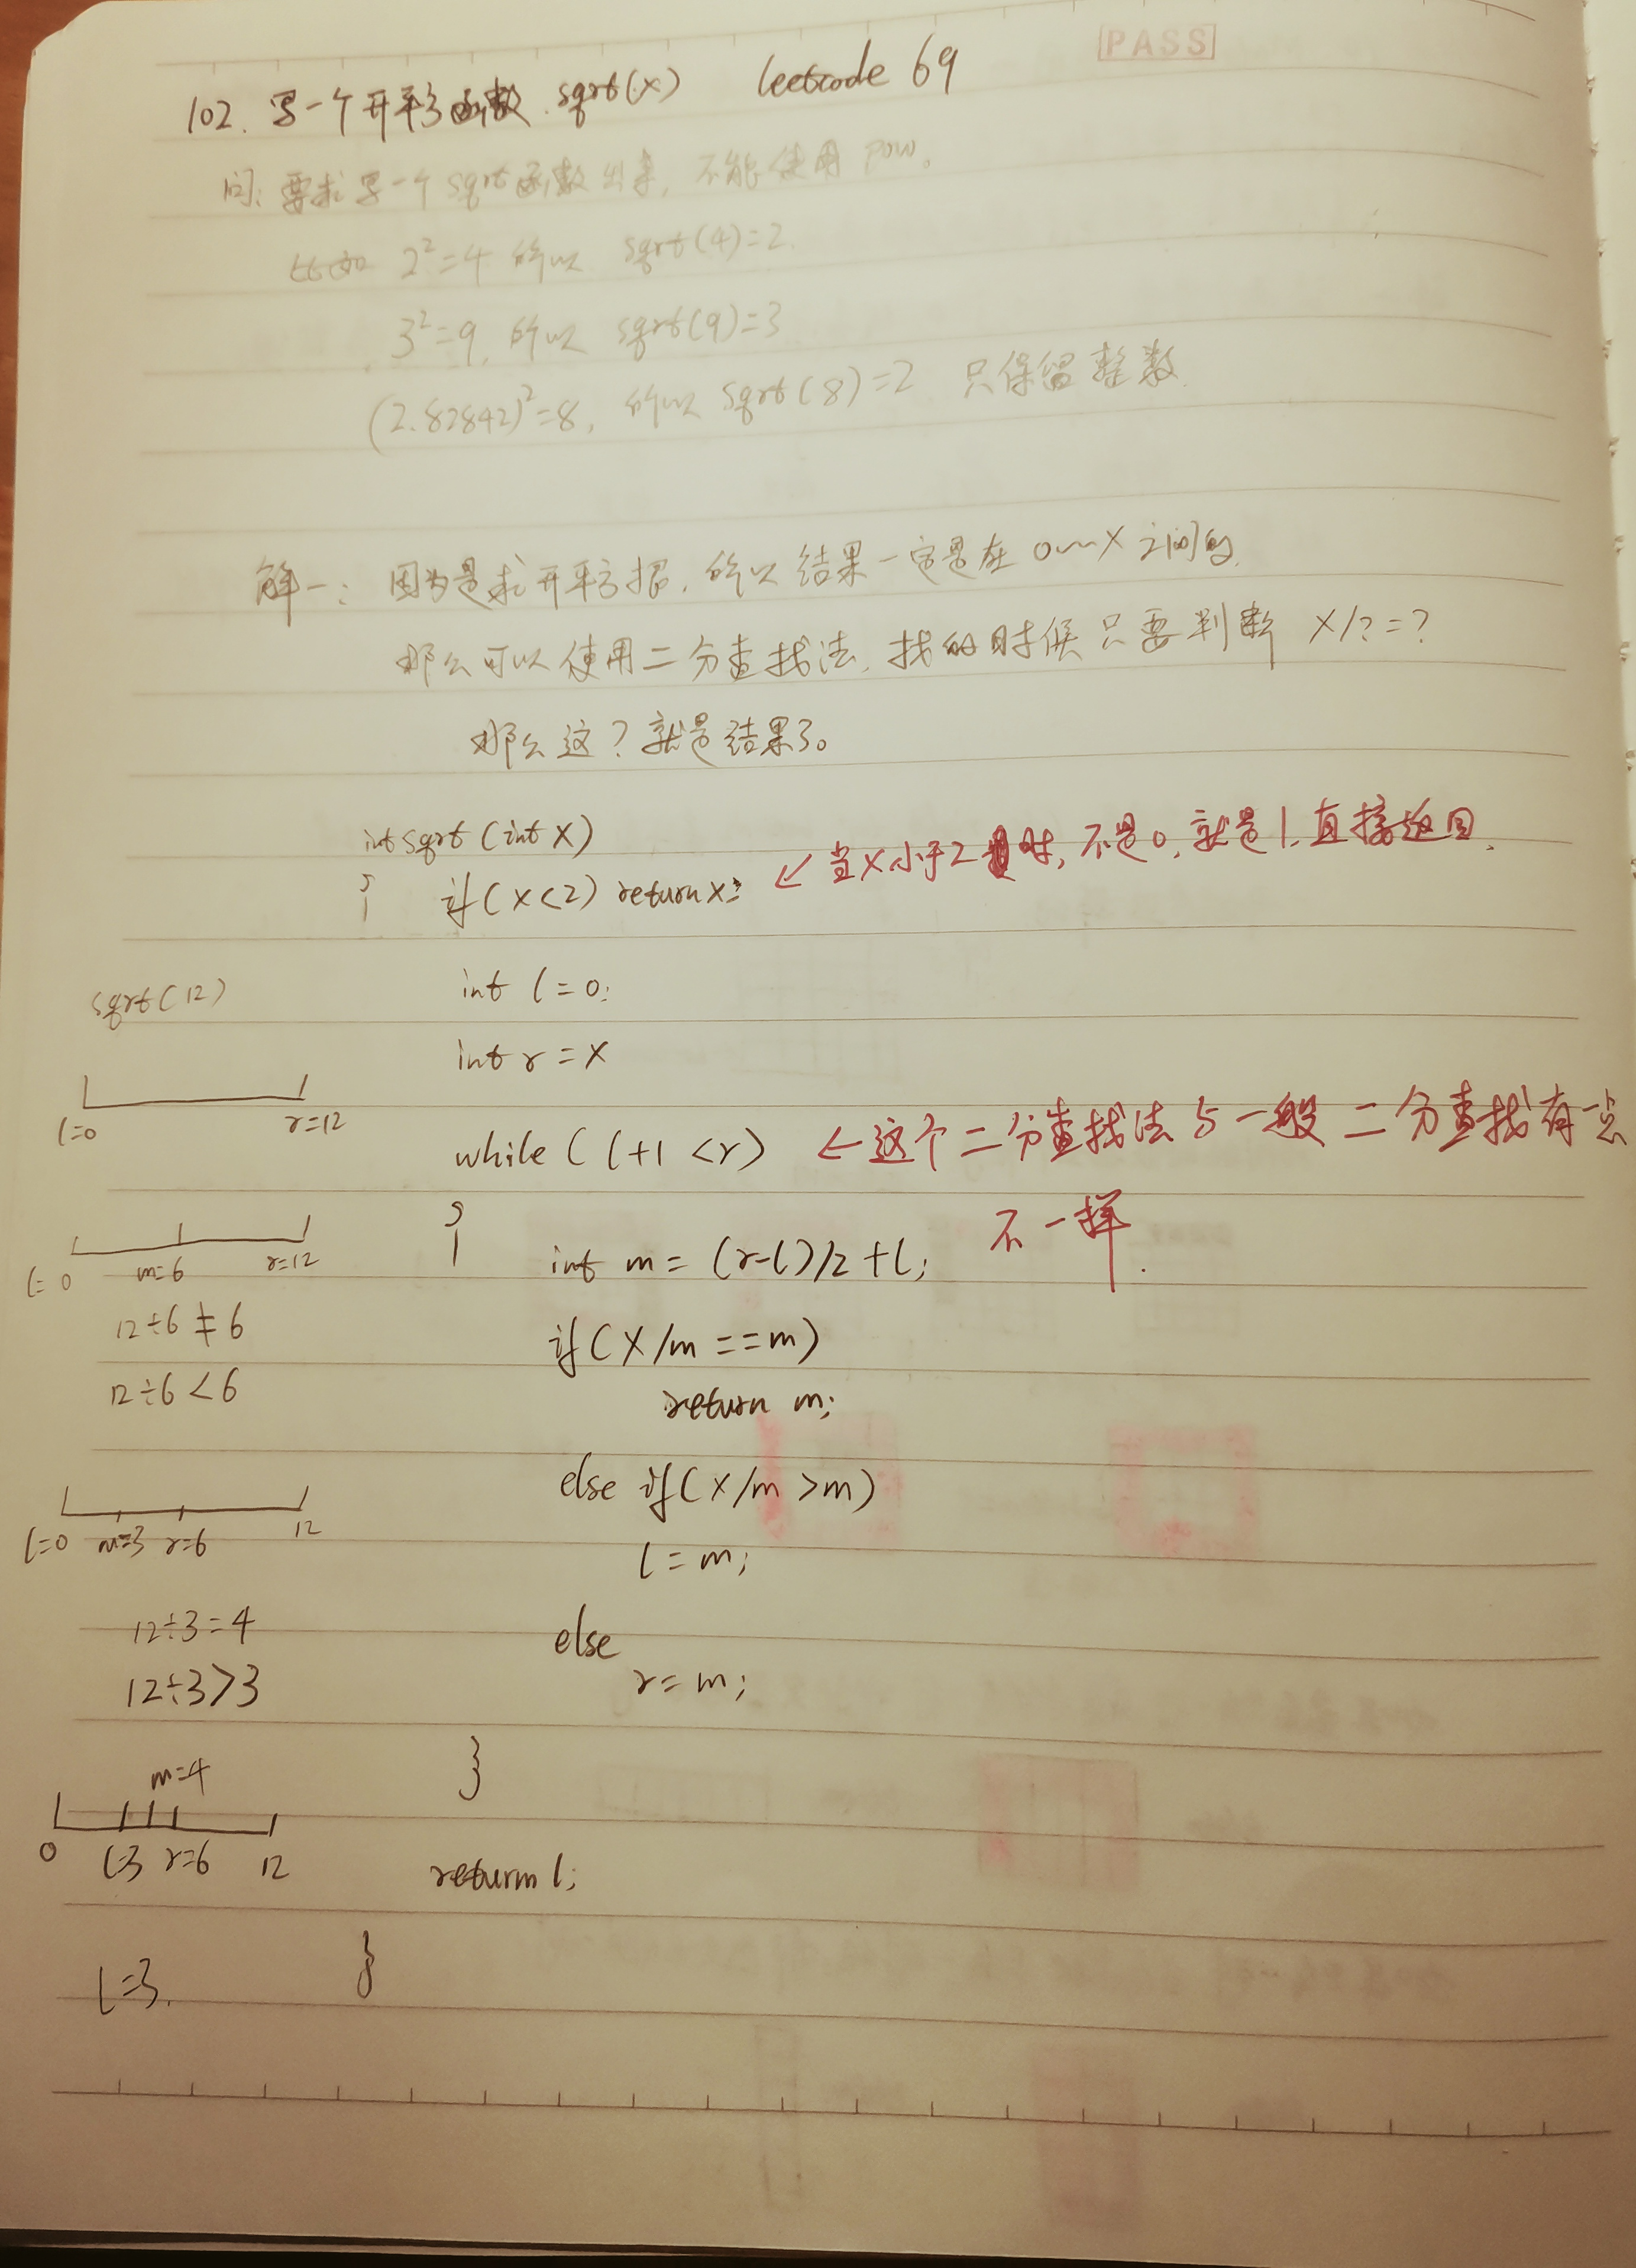 PASS
102. 写一个开平方函数. sqrt(x) leetcode 69
问: 要求写一个sqrt函数出来, 不能使用pow。
比如 2²=4 所以 sqrt(4)=2.
3²=9, 所以 sqrt(9)=3
(2.82842)²=8, 所以 sqrt(8)=2 只保留整数.
解一: 因为是求开平方根, 所以结果一定是在 0~~X 之间的.
那么可以使用二分查找法, 找的时候只要判断 X/?=?
那么这?就是结果了。
int sqrt(int X)
{ if(X<2) return x; ← 当X小于2时, 不是0, 就是1, 直接返回.
int l=0;
int r=X
while(l+1<r) ← 这个二分查找法与一般二分查找有一点
不一样.
{
int m=(r-l)/2+l;
if(X/m==m)
return m;
else if(X/m>m)
l=m;
else
r=m;
}
return l;
}
sqrt(12)
l=0 r=12
l=0 m=6 r=12
12÷6≠6
12÷6<6
l=0 m=3 r=6 12
12÷3=4
12÷3>3
m=4
0 l=3 r=6 12
l=3.